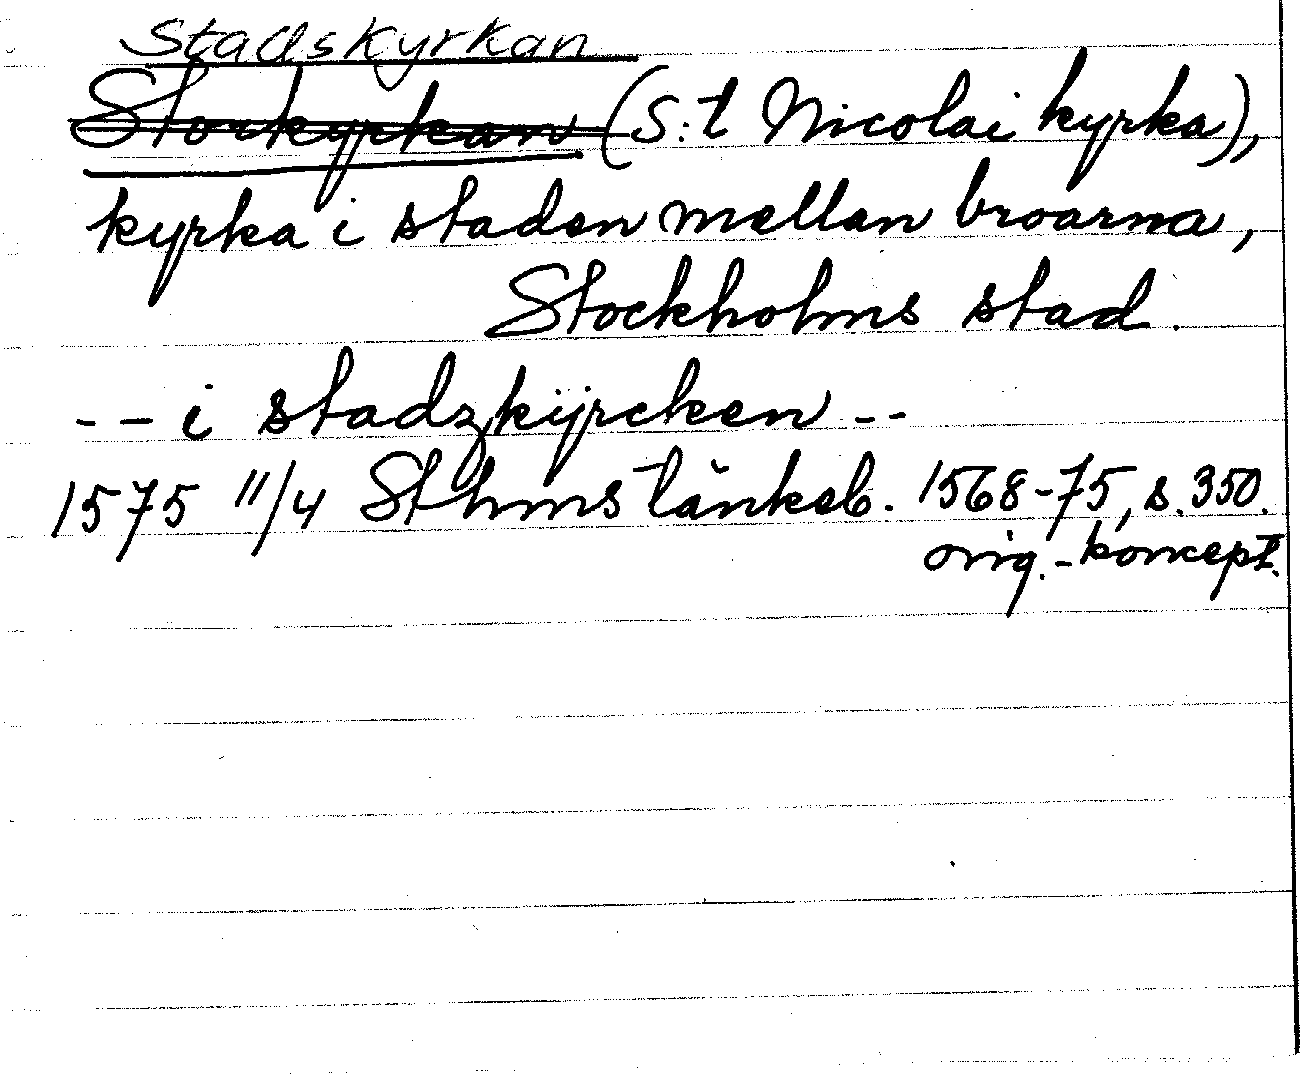 Stadskyrkan
Storkyrkan (S:t Nicolai kyrka),
kyrka i staden mellan broarna,
Stockholms stad.
-- i stadzkijrcken --
1575 11/4 Sthms tänkeb. 1568-75, s. 350.
orig.-koncept.